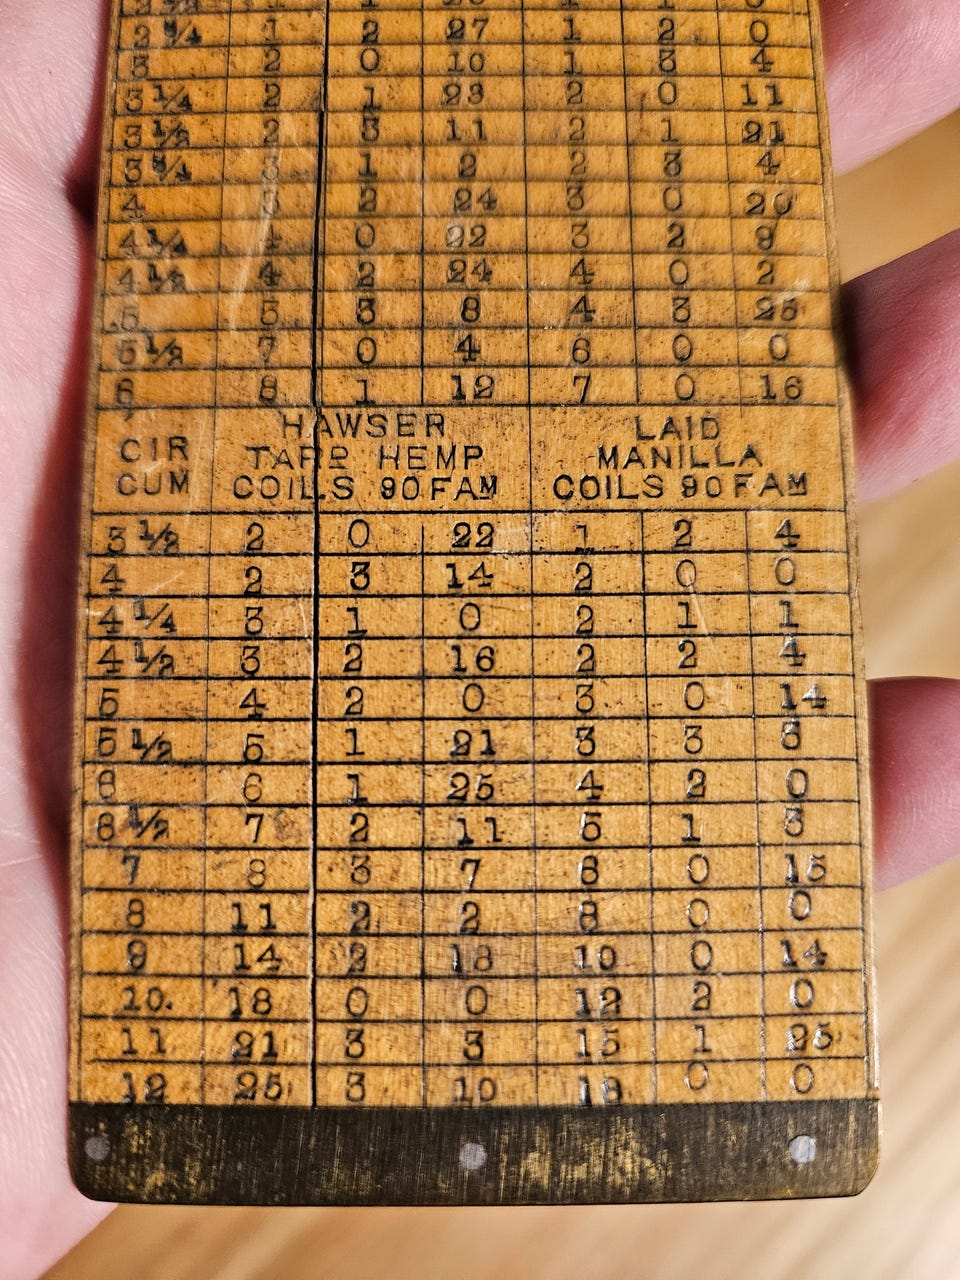 2 3/4 1 2 27 1 2 0
3 2 0 10 1 3 4
3 1/4 2 1 23 2 0 11
3 1/2 2 3 11 2 1 21
3 3/4 3 1 2 2 3 4
4 3 2 24 3 0 20
4 1/4 4 0 22 3 2 9
4 1/2 4 2 24 4 0 2
5 5 3 8 4 3 25
5 1/2 7 0 4 6 0 0
6 8 1 12 7 0 16
CIR CUM HAWSER LAID
TARD HEMP MANILLA
COILS 90 FAM COILS 90 FAM
3 1/2 2 0 22 1 2 4
4 2 3 14 2 0 0
4 1/4 3 1 0 2 1 1
4 1/2 3 2 16 2 2 4
5 4 2 0 3 0 14
5 1/2 5 1 21 3 3 3
6 6 1 25 4 2 0
6 1/2 7 2 11 5 1 3
7 8 3 7 6 0 15
8 11 2 2 8 0 0
9 14 2 18 10 0 14
10. 18 0 0 12 2 0
11 21 3 3 15 1 25
12 25 3 10 18 0 0